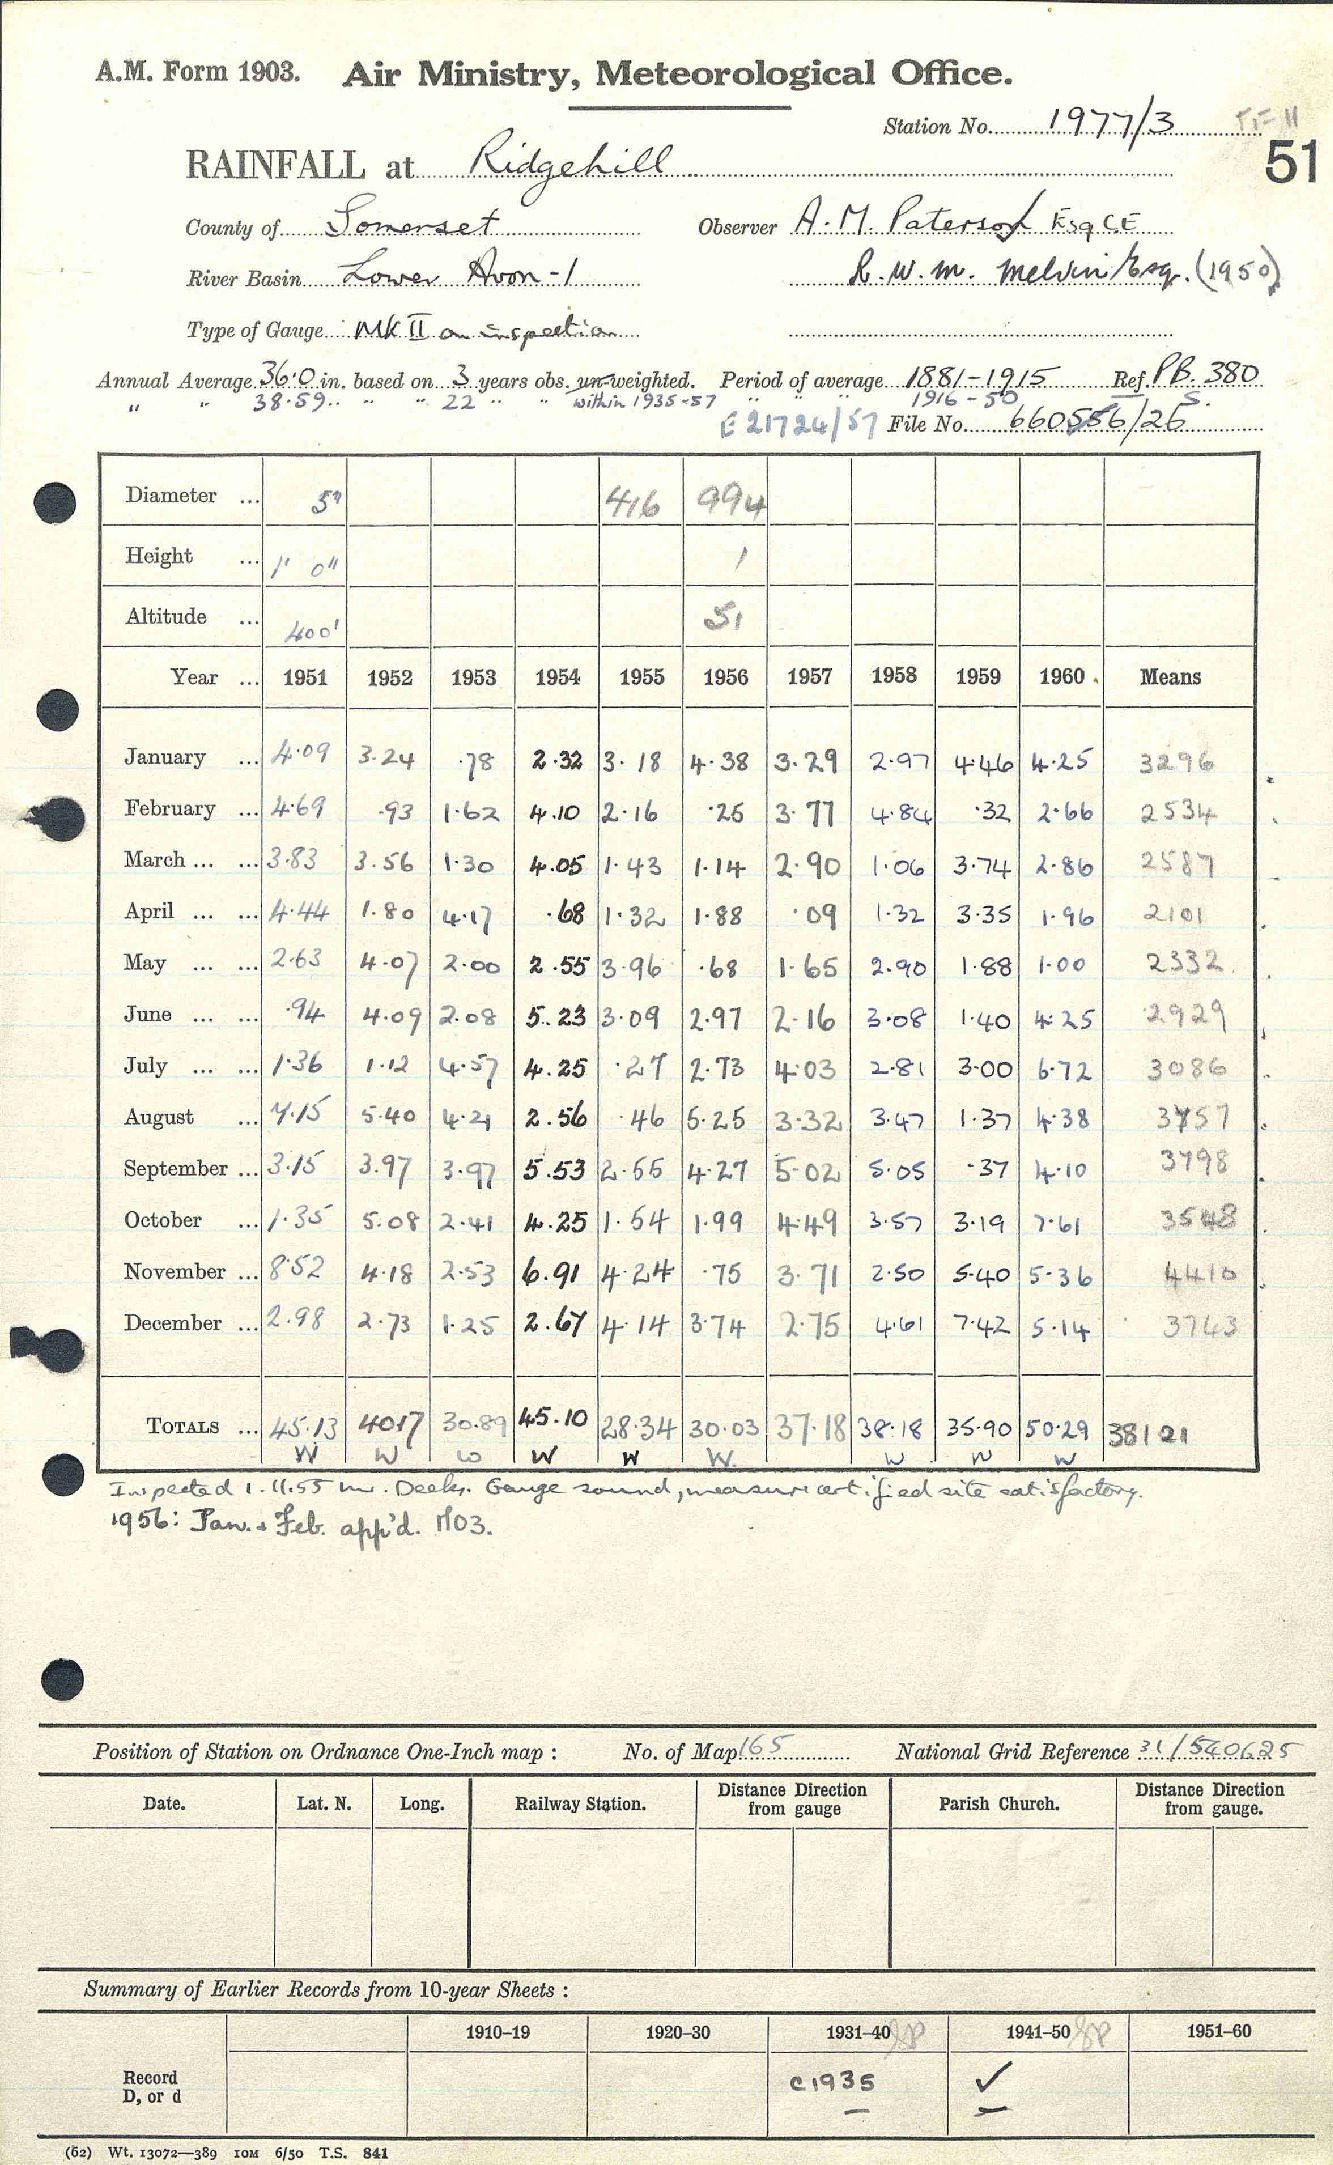 A.M. Form 1903. Air Ministry, Meteorological Office.
Station No. 1977/3
51
RAINFALL at Ridgehill
County of Somerset Observer A. M. Paterson Esq C.E
River Basin Lower Avon - 1 R. W. M. Melvin Esq. (1950)
Type of Gauge MK II on inspection
Annual Average 36.0 in. based on 3 years obs. un-weighted. Period of average 1881-1915 Ref. P.B. 380
" " 38.59 " " 22 " " within 1935-57 " " " 1916-50 S.
E 21724/57 File No. 660556/26
Diameter ... 5" 416 994
Height ... 1' 0" 1
Altitude ... 400' 51
Year ... 1951 1952 1953 1954 1955 1956 1957 1958 1959 1960. Means
January ... 4.09 3.24 .78 2.32 3.18 4.38 3.29 2.97 4.46 4.25 3296
February ... 4.69 .93 1.62 4.10 2.16 .25 3.77 4.84 .32 2.66 2534
March ... ... 3.83 3.56 1.30 4.05 1.43 1.14 2.90 1.06 3.74 2.86 2587
April ... ... 4.44 1.80 4.17 .68 1.32 1.88 .09 1.32 3.35 1.96 2101
May ... ... 2.63 4.07 2.00 2.55 3.96 .68 1.65 2.90 1.88 1.00 2332
June ... ... .94 4.09 2.08 5.23 3.09 2.97 2.16 3.08 1.40 4.25 2929
July ... ... 1.36 1.12 4.57 4.25 .27 2.73 4.03 2.81 3.00 6.72 3086
August ... 7.15 5.40 4.21 2.56 .46 5.25 3.32 3.47 1.37 4.38 3757
September ... 3.15 3.97 3.97 5.53 2.55 4.27 5.02 5.05 .37 4.10 3798
October ... 1.35 5.08 2.41 4.25 1.54 1.99 4.49 3.57 3.19 7.61 3548
November ... 8.52 4.18 2.53 6.91 4.24 .75 3.71 2.50 5.40 5.36 4410
December ... 2.98 2.73 1.25 2.67 4.14 3.74 2.75 4.61 7.42 5.14 3743
TOTALS ... 45.13 40.17 30.89 45.10 28.34 30.03 37.18 38.18 35.90 50.29 38121
W W W W W W. W W W
Inspected 1.11.55 Mr. Deeks. Gauge sound, measure certified site satisfactory.
1956: Jan. & Feb. app'd. M03.
Position of Station on Ordnance One-Inch map : No. of Map 165 National Grid Reference 31/540625
Date. Lat. N. Long. Railway Station. Distance Direction from gauge Parish Church. Distance Direction from gauge.
Summary of Earlier Records from 10-year Sheets :
1910-19 1920-30 1931-40 1941-50 1951-60
Record
D, or d c1935 ✓
(62) Wt. 13072—389 10M 6/50 T.S. 841